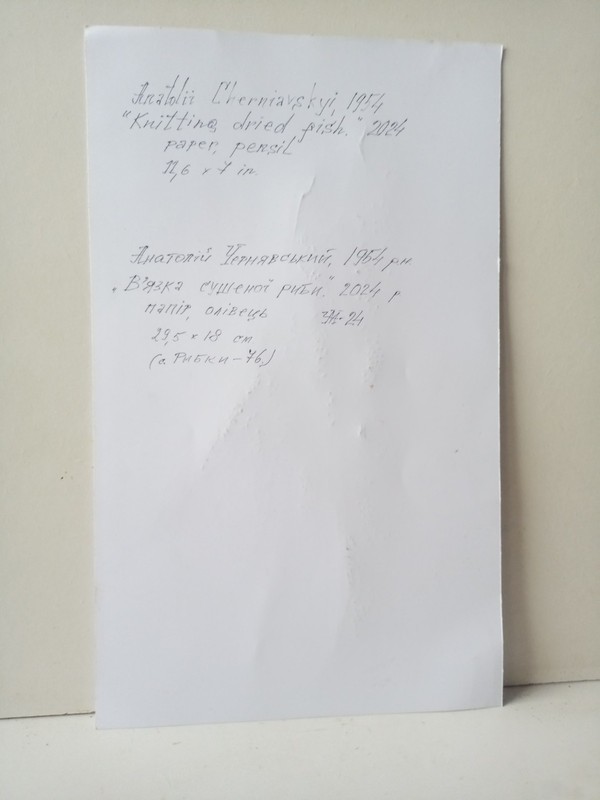 Anatolii Cherniavskyi, 1954
"Knitting dried fish." 2024
paper, pensil
11,6 x 7 in.
Анатолій Чернявський, 1954 рн
„В'язка сушеної риби." 2024 р
папір, олівець
29,5 x 18 см
(с. Рибки - 76.)